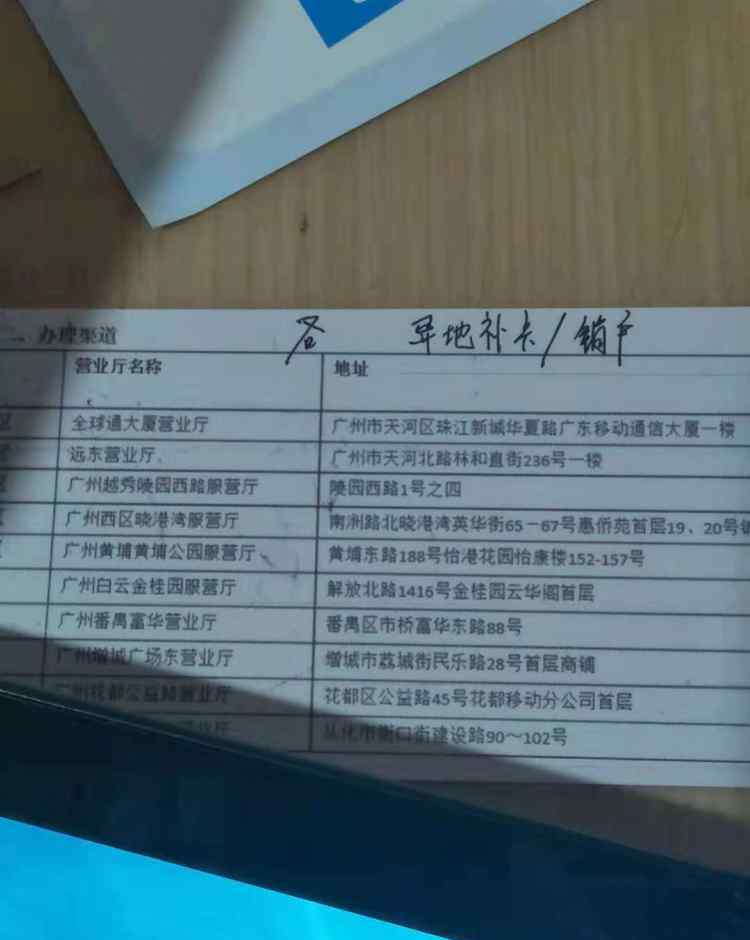 办理渠道 异地补卡/销户
营业厅名称 地址
全球通大厦营业厅 广州市天河区珠江新城华夏路广东移动通信大厦一楼
远东营业厅. 广州市天河北路林和直街236号一楼
广州越秀陵园西路服营厅 陵园西路1号之四
广州西区晓港湾服营厅 南洲路北晓港湾英华街65－67号惠侨苑首层19、20号
广州黄埔黄埔公园服营厅 黄埔东路188号怡港花园怡康楼152-157号
广州白云金桂园服营厅 解放北路1416号金桂园云华阁首层
广州番禺富华营业厅 番禺区市桥富华东路88号
广州增城广场东营业厅 增城市荔城街民乐路28号首层商铺
广州花都公益路营业厅 花都区公益路45号花都移动分公司首层
从化市街口街建设路90～102号